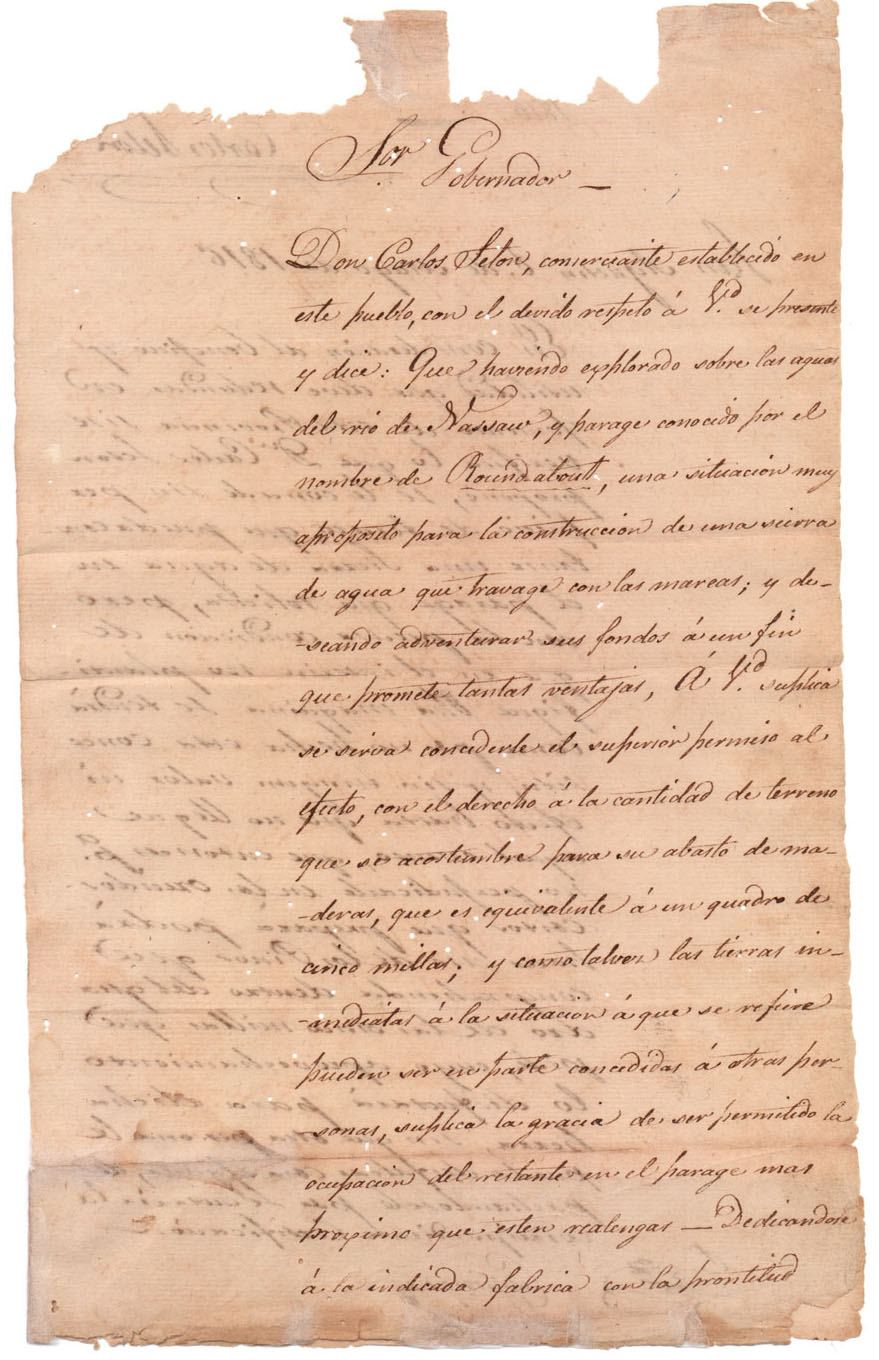 Sor Gobernador
Don Carlos Seton, comerciante establecido en
este pueblo, con el devido respeto á V.d se presente
y dice: Que haviendo explorado sobre las aguas
del rio de Nassaw, y parage conocido por el
nombre de Roundabout, una situación muy
aproposito para la construccion de una sierra
de agua que travage con las mareas; y de-
-seando adventurar sus fondos á un fin
que promete tantas ventajas, Á V.d suplica
se sirva concederle el superior permiso al
efecto, con el derecho á la cantidad de terreno
que se acostumbre para su abasto de ma-
-deras, que es equivalente á un quadro de
cinco millas; y como talvez las tierras in-
-mediátas á la situacion á que se refiere
pueden ser en parte concedidas á otras per-
-sonas, suplica la gracia de ser permitido la
ocupacion del restante en el parage mas
proximo que esten realengas — Dedicandose
á la indicada fabrica con la prontitud